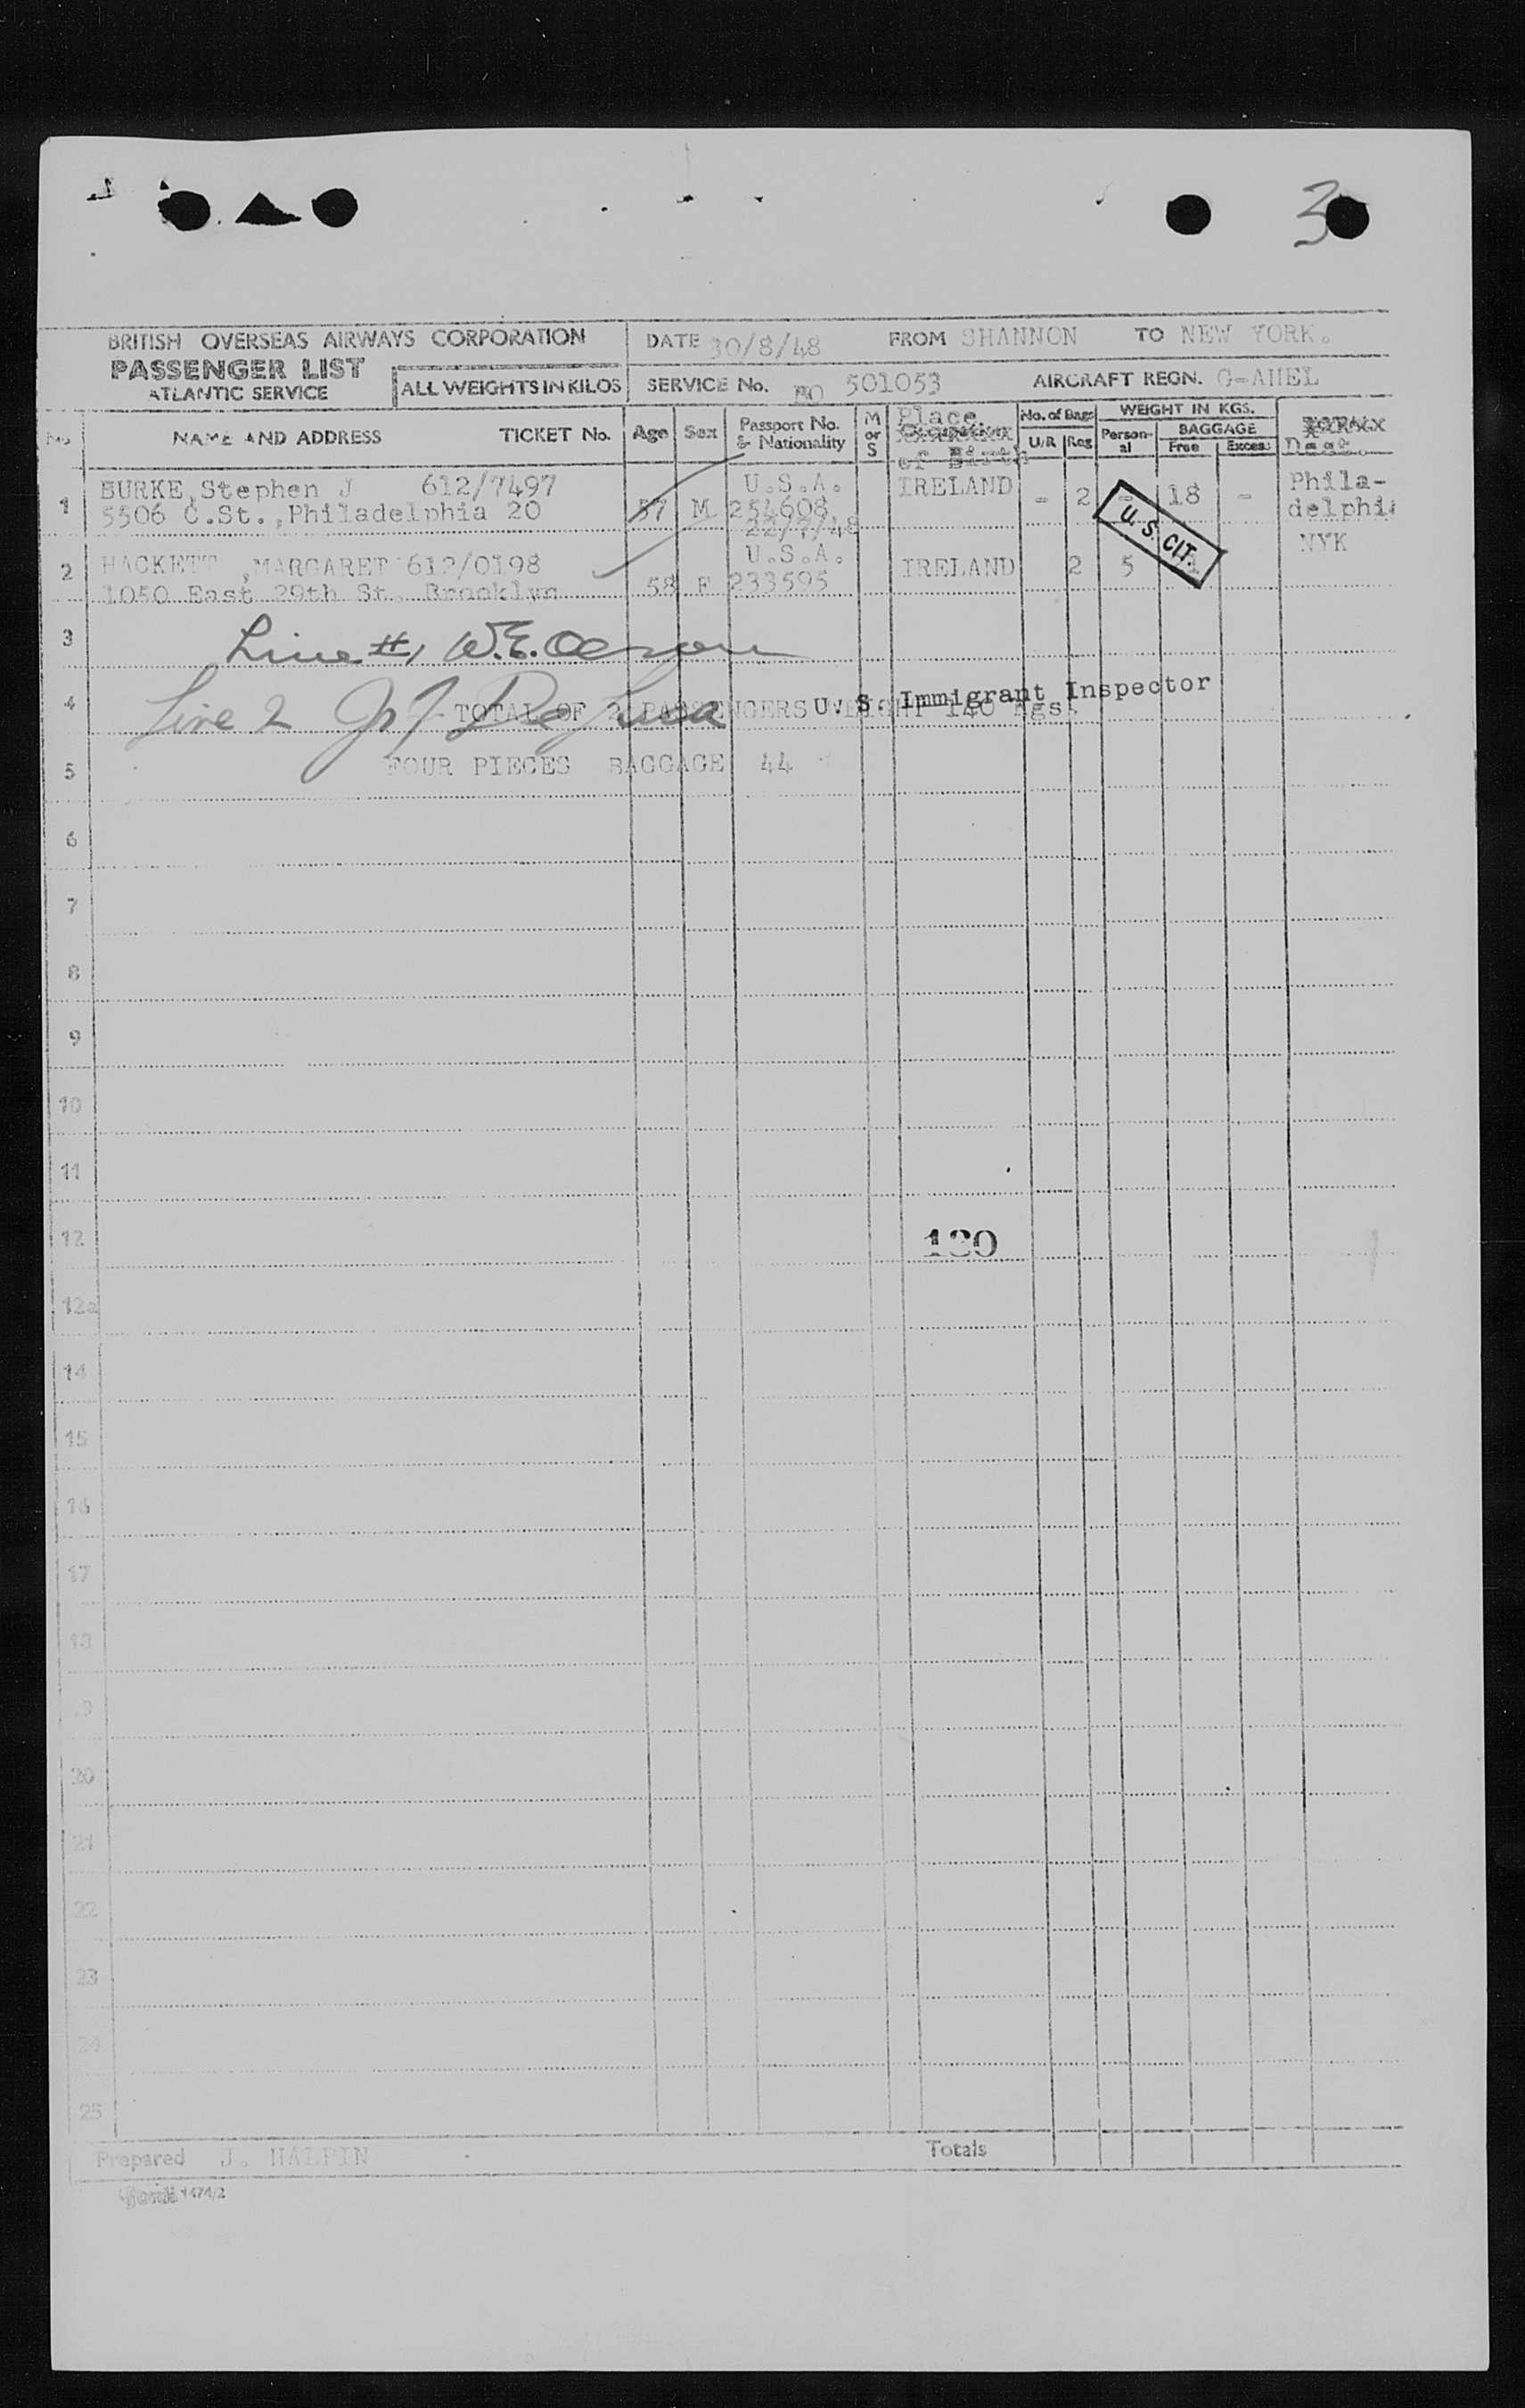 3
BRITISH OVERSEAS AIRWAYS CORPORATION DATE 30/8/48 FROM SHANNON TO NEW YORK.
PASSENGER LIST
ATLANTIC SERVICE ALL WEIGHTS IN KILOS SERVICE No. 501053 AIRCRAFT REGN. G-AHEL
No NAME AND ADDRESS TICKET No. Age Sex Passport No. & Nationality M or S Place of Birth No. of Bags U/R Reg WEIGHT IN KGS. Person-al BAGGAGE Free Excess Dest.
1 BURKE,Stephen J 612/7497 57 M U.S.A. IRELAND - 2 - 18 - Phila-
5506 C.St.,Philadelphia 20 254608 delphia
22/7/48
U. S. CIT.
2 HACKETT ,MARGARET 612/0198 58 F U.S.A. IRELAND 2 5 NYK
1050 East 29th St. Brooklyn 233595
3 Line #1 W.E.
4 Line 2 TOTAL OF 2 PASSENGERS WEIGHT 140 Kgs. U. S. Immigrant Inspector
5 FOUR PIECES BAGGAGE 44
6
7
8
9
10
11
12
12a
14
15
16
17
18
19
20
21
22
23
24
25
Prepared J. HALPIN Totals
1474/2